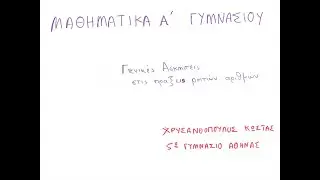 ΜΑΘΗΜΑΤΙΚΑ Α΄ ΓΥΜΝΑΣΙΟΥ
Γενικές Ασκήσεις
στις πράξεις ρητών αριθμών
ΧΡΥΣΑΝΘΟΠΟΥΛΟΣ ΚΩΣΤΑΣ
5ο ΓΥΜΝΑΣΙΟ ΑΘΗΝΑΣ